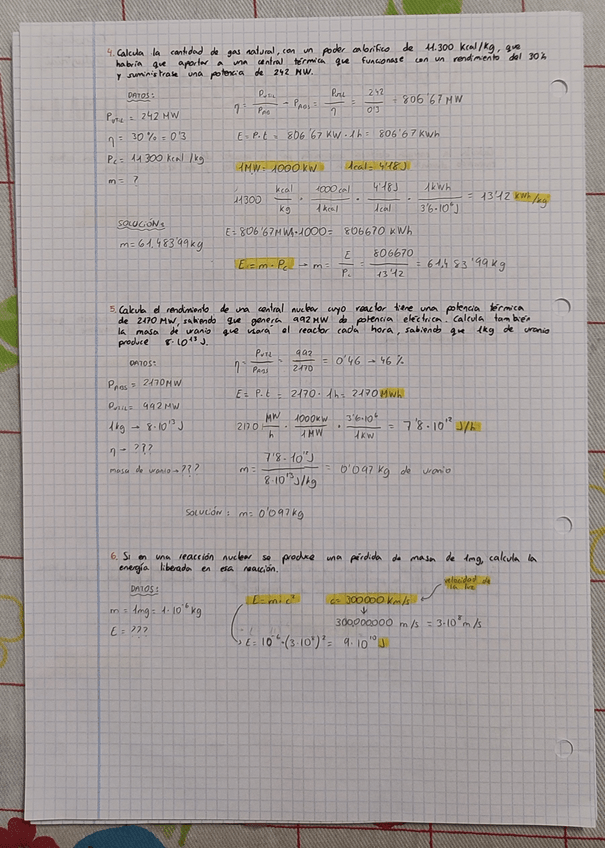 4. Calcula la cantidad de gas natural, con un poder calorífico de 11.300 kcal/kg, que
habría que aportar a una central térmica que funcionase con un rendimiento del 30%
y suministrase una potencia de 242 MW.
DATOS:
Pútil = 242 MW
η = 30% = 0'3
Pc = 11300 kcal/kg
m = ?
η = Pútil / Pabs → Pabs = Pútil / η = 242 / 0'3 = 806'67 MW
E = P·t = 806'67 KW · 1h = 806'67 KWh
1MW = 1000 KW 1cal = 4'18J
11300 kcal/kg · 1000cal/1kcal · 4'18J/1cal · 1kWh/3'6·10⁶J = 13'12 kWh/kg
SOLUCIÓN:
m = 61.483'99kg
E = 806'67MWh·1000 = 806670 KWh
E = m · Pc → m = E / Pc = 806670 / 13'12 = 61483'99 kg
5. Calcula el rendimiento de una central nuclear cuyo reactor tiene una potencia térmica
de 2170 MW, sabiendo que genera 992 MW de potencia eléctrica. Calcula también
la masa de uranio que usará el reactor cada hora, sabiendo que 1kg de uranio
produce 8·10¹³ J.
DATOS:
Pabs = 2170MW
Pútil = 992 MW
1kg → 8·10¹³ J
η → ???
masa de uranio → ???
η = Pútil / Pabs = 992 / 2170 = 0'46 → 46 %
E = P·t = 2170 · 1h = 2170 MWh
2170 MW/h · 1000KW/1MW · 3'6·10⁶/1KW = 7'8·10¹² J/h
m = 7'8·10¹²J / 8·10¹³J/kg = 0'097 kg de uranio
SOLUCIÓN: m = 0'097kg
6. Si en una reacción nuclear se produce una pérdida de masa de 1mg, calcula la
energía liberada en esa reacción.
DATOS:
m = 1mg = 1·10⁻⁶ kg
E = ???
E = m·c² c = 300000 km/s velocidad de la luz
300.000000 m/s = 3·10⁸ m/s
E = 10⁻⁶·(3·10⁸)² = 9·10¹⁰ J